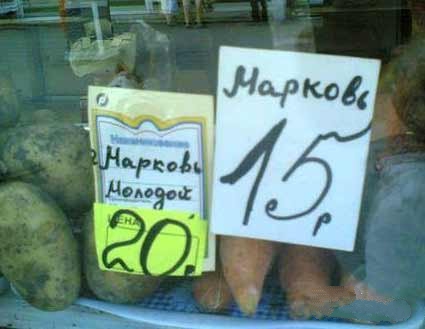 Наименование
Марковь
Молодой
ЦЕНА
20
Марковь
15 р